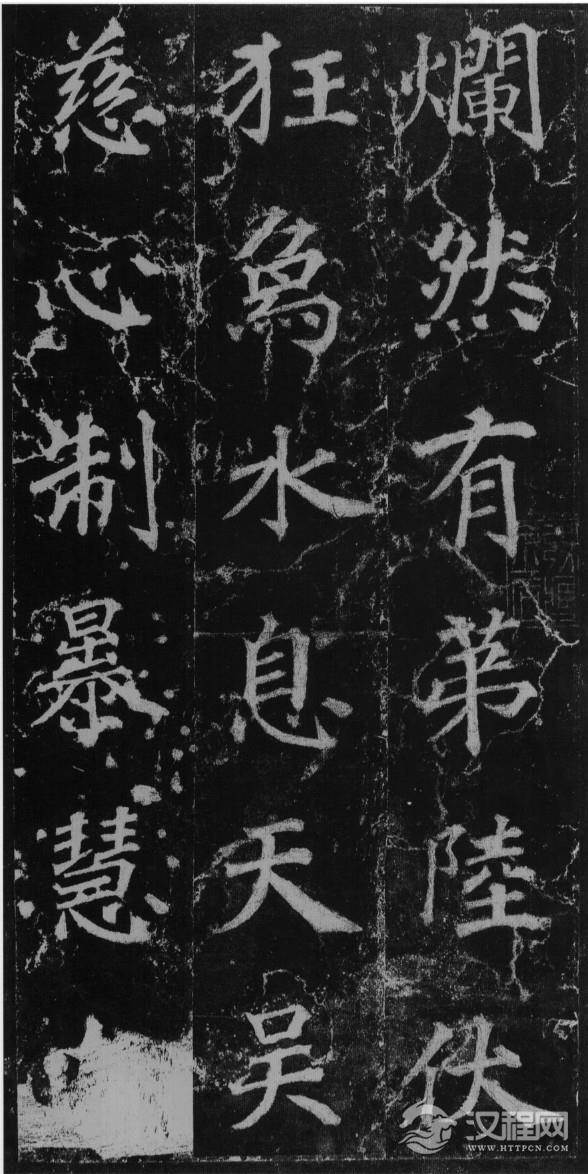 爛然有苐陸伏
狂象水息天吴
慈心制暴慧
汉程网
WWW.HTTPCN.COM